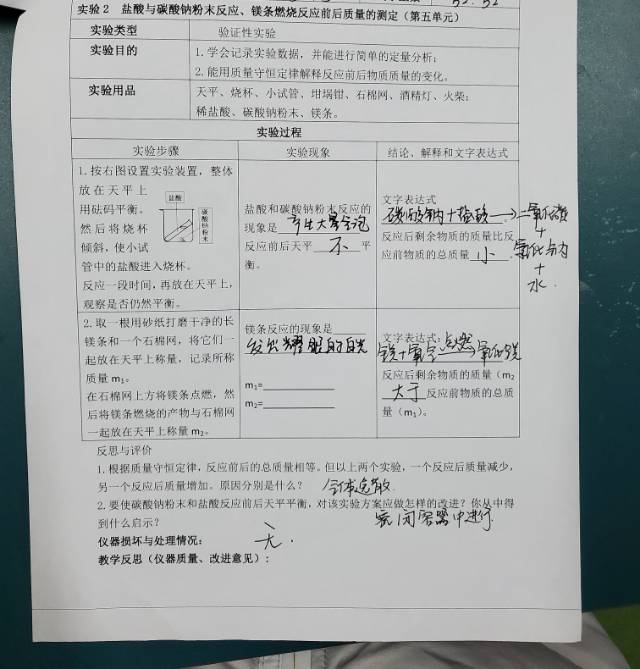 实验 2 盐酸与碳酸钠粉末反应、镁条燃烧反应前后质量的测定（第五单元）
实验类型
验证性实验
实验目的
1.学会记录实验数据，并能进行简单的定量分析；
2.能用质量守恒定律解释反应前后物质质量的变化。
实验用品
天平、烧杯、小试管、坩埚钳、石棉网、酒精灯、火柴；
稀盐酸、碳酸钠粉末、镁条。
实验过程
实验步骤
实验现象
结论、解释和文字表达式
1.按右图设置实验装置，整体
放在天平上
用砝码平衡。
然后将烧杯
倾斜，使小试
管中的盐酸进入烧杯。
反应一段时间，再放在天平上，
观察是否仍然平衡。
盐酸
碳酸钠粉末
盐酸和碳酸钠粉末反应的
现象是 产生大量气泡
反应前后天平 不 平
衡。
文字表达式
碳酸钠+盐酸→二氧化碳
+
氯化钠
+
水.
反应后剩余物质的质量比反
应前物质的总质量 小 .
2.取一根用砂纸打磨干净的长
镁条和一个石棉网，将它们一
起放在天平上称量，记录所称
质量 m₁。
在石棉网上方将镁条点燃，然
后将镁条燃烧的产物与石棉网
一起放在天平上称量 m₂。
镁条反应的现象是
发出耀眼的白光
m₁=
m₂=
文字表达式：点燃
镁+氧气→氧化镁
反应后剩余物质的质量（m₂
大于 反应前物质的总质
量（m₁）。
反思与评价
1.根据质量守恒定律，反应前后的总质量相等。但以上两个实验，一个反应后质量减少，
另一个反应后质量增加。原因分别是什么？ 气体逸散
2.要使碳酸钠粉末和盐酸反应前后天平平衡，对该实验方案应做怎样的改进？你从中得
到什么启示？ 密闭容器中进行
仪器损坏与处理情况： 无.
教学反思（仪器质量、改进意见）：